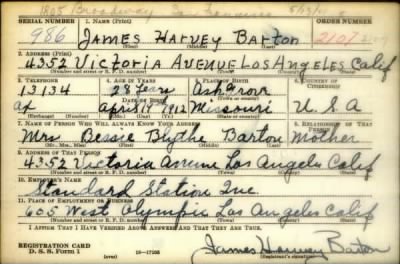 1805 Broadway San Francisco 5/29/41
SERIAL NUMBER 1. NAME (Print) ORDER NUMBER
986 JAMES HARVEY BARTON 2107
(First) (Middle) (Last)
2. ADDRESS (Print)
4352 VICTORIA AVENUE LOS ANGELES Calif
(Number and street or R. F. D. number) (Town) (County) (State)
3. TELEPHONE 4. AGE IN YEARS 5. PLACE OF BIRTH 6. COUNTRY OF CITIZENSHIP
13134 28 Years Ash Grove
DATE OF BIRTH (Town or county)
ax April 14 1912 Missouri U.S.A
(Exchange) (Number) (Mo.) (Day) (Yr.) (State or country)
7. NAME OF PERSON WHO WILL ALWAYS KNOW YOUR ADDRESS 8. RELATIONSHIP OF THAT PERSON
Mrs Bessie Blythe Barton Mother
(Mr., Mrs., Miss) (First) (Middle) (Last)
9. ADDRESS OF THAT PERSON
4352 Victoria Avenue Los Angeles Calif
(Number and street or R. F. D. number) (Town) (County) (State)
10. EMPLOYER'S NAME
Standard Station Inc.
11. PLACE OF EMPLOYMENT OR BUSINESS
605 West Olympic Los Angeles Calif
(Number and street or R. F. D. number) (Town) (County) (State)
I AFFIRM THAT I HAVE VERIFIED ABOVE ANSWERS AND THAT THEY ARE TRUE.
REGISTRATION CARD
D. S. S. Form 1 (over) 16-17105 James Harvey Barton
(Registrant's signature)